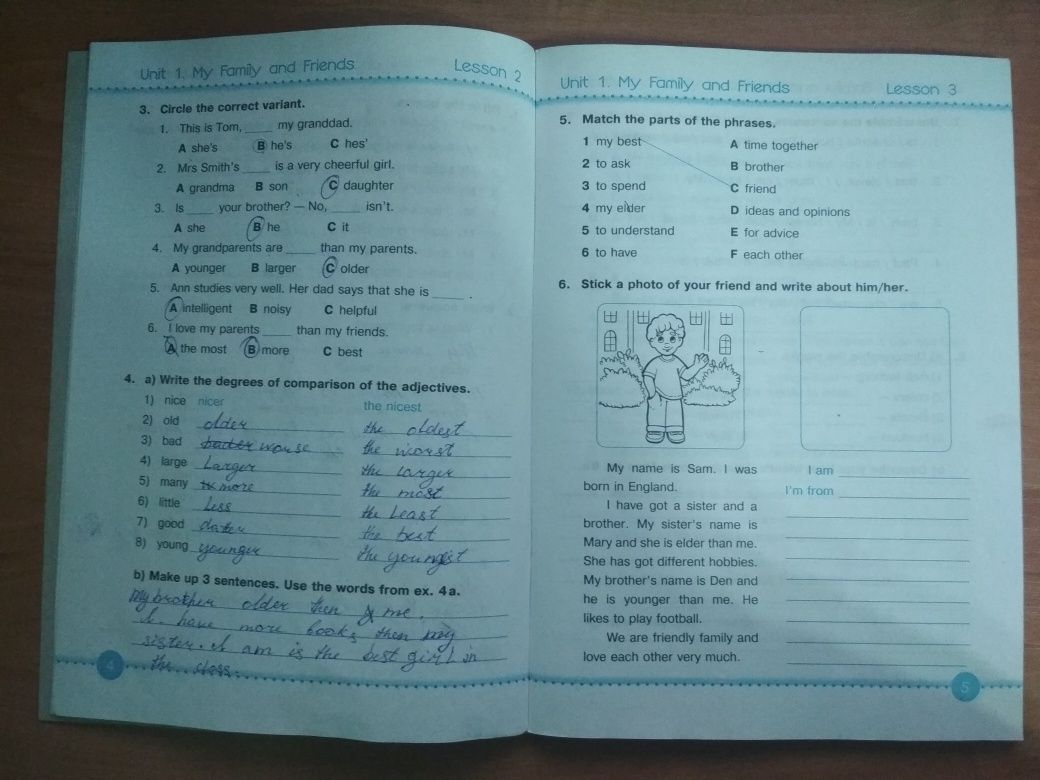 Unit 1. My Family and Friends
Lesson 2
3. Circle the correct variant.
1. This is Tom, ____ my granddad.
A she's B he's C hes'
2. Mrs Smith's ____ is a very cheerful girl.
A grandma B son C daughter
3. Is ____ your brother? — No, ____ isn't.
A she B he C it
4. My grandparents are ____ than my parents.
A younger B larger C older
5. Ann studies very well. Her dad says that she is ____ .
A intelligent B noisy C helpful
6. I love my parents ____ than my friends.
A the most B more C best
4. a) Write the degrees of comparison of the adjectives.
1) nice nicer the nicest
2) old older the oldest
3) bad worse the worst
4) large Larger the larger
5) many more the most
6) little Less the Least
7) good the best
8) young younger the youngest
b) Make up 3 sentences. Use the words from ex. 4a.
My brother older then me.
I have more books then my
sister. I am is the best girl in
the class.
4
Unit 1. My Family and Friends
Lesson 3
5. Match the parts of the phrases.
1 my best A time together
2 to ask B brother
3 to spend C friend
4 my elder D ideas and opinions
5 to understand E for advice
6 to have F each other
6. Stick a photo of your friend and write about him/her.
My name is Sam. I was
born in England.
I have got a sister and a
brother. My sister's name is
Mary and she is elder than me.
She has got different hobbies.
My brother's name is Den and
he is younger than me. He
likes to play football.
We are friendly family and
love each other very much.
I am
I'm from
5